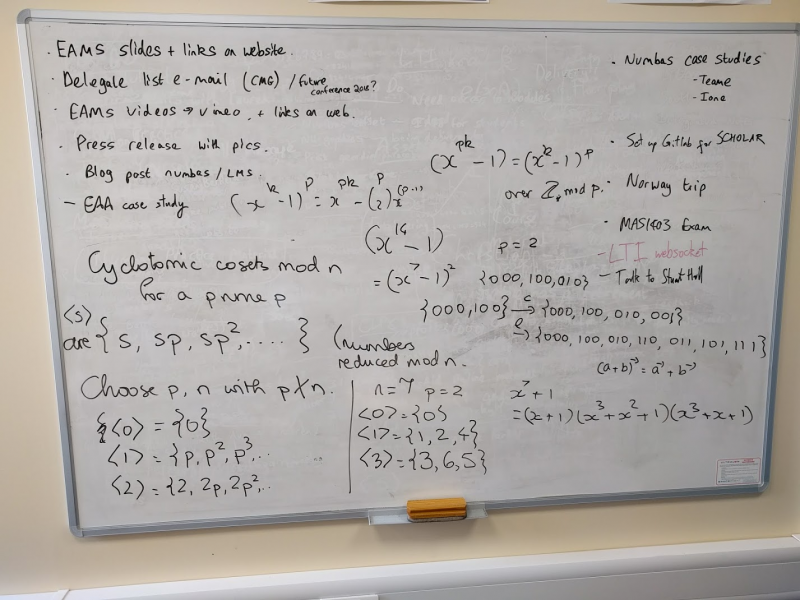 · EAMS slides + links on website.
· Delegate list e-mail (CMG) / future conference 2018?
· EAMS videos → vimeo, + links on web.
· Press release with pics.
· Blog post numbas / LMS.
- EAA case study
(x^k - 1)^p = x^{pk} - (p 2) x^{(p-1)}
(x^{pk} - 1) = (x^k - 1)^p
over Z, mod p.
(x^{14} - 1)
= (x^7 - 1)^2
p = 2
{000, 100, 010}
{000, 100} →^C {000, 100, 010, 001}
→ {000, 100, 010, 110, 011, 101, 111}
(a+b)^{-1} = a^{-1} + b^{-1}
· Numbas case studies
- Teame
- Ione
· Set up Gitlab for SCHOLAR
· Norway trip
· MAS1403 Exam
- LTI websocket
- Talk to Stuart Hall
Cyclotomic cosets mod n
for a prime p
<s>
are { s, sp, sp², .... }
(numbers
reduced mod n.
Choose p, n with p∤n.
<0> = {0}
<1> = {p, p², p³, ..
<2> = {2, 2p, 2p², ..
n=7 p=2
<0>={0}
<1>={1,2,4}
<3>={3,6,5}
x^7 + 1
=(x+1)(x³+x²+1)(x³+x+1)